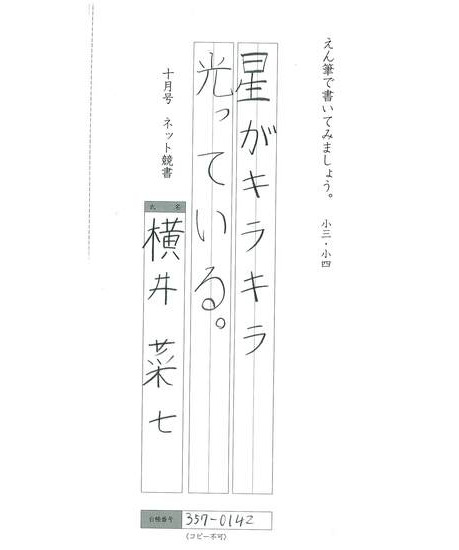 えん筆で書いてみましょう。 小三・小四
星がキラキラ
光っている。
十月号 ネット競書
氏 名
横井 菜七
台帳番号 357-0142
(コピー不可)